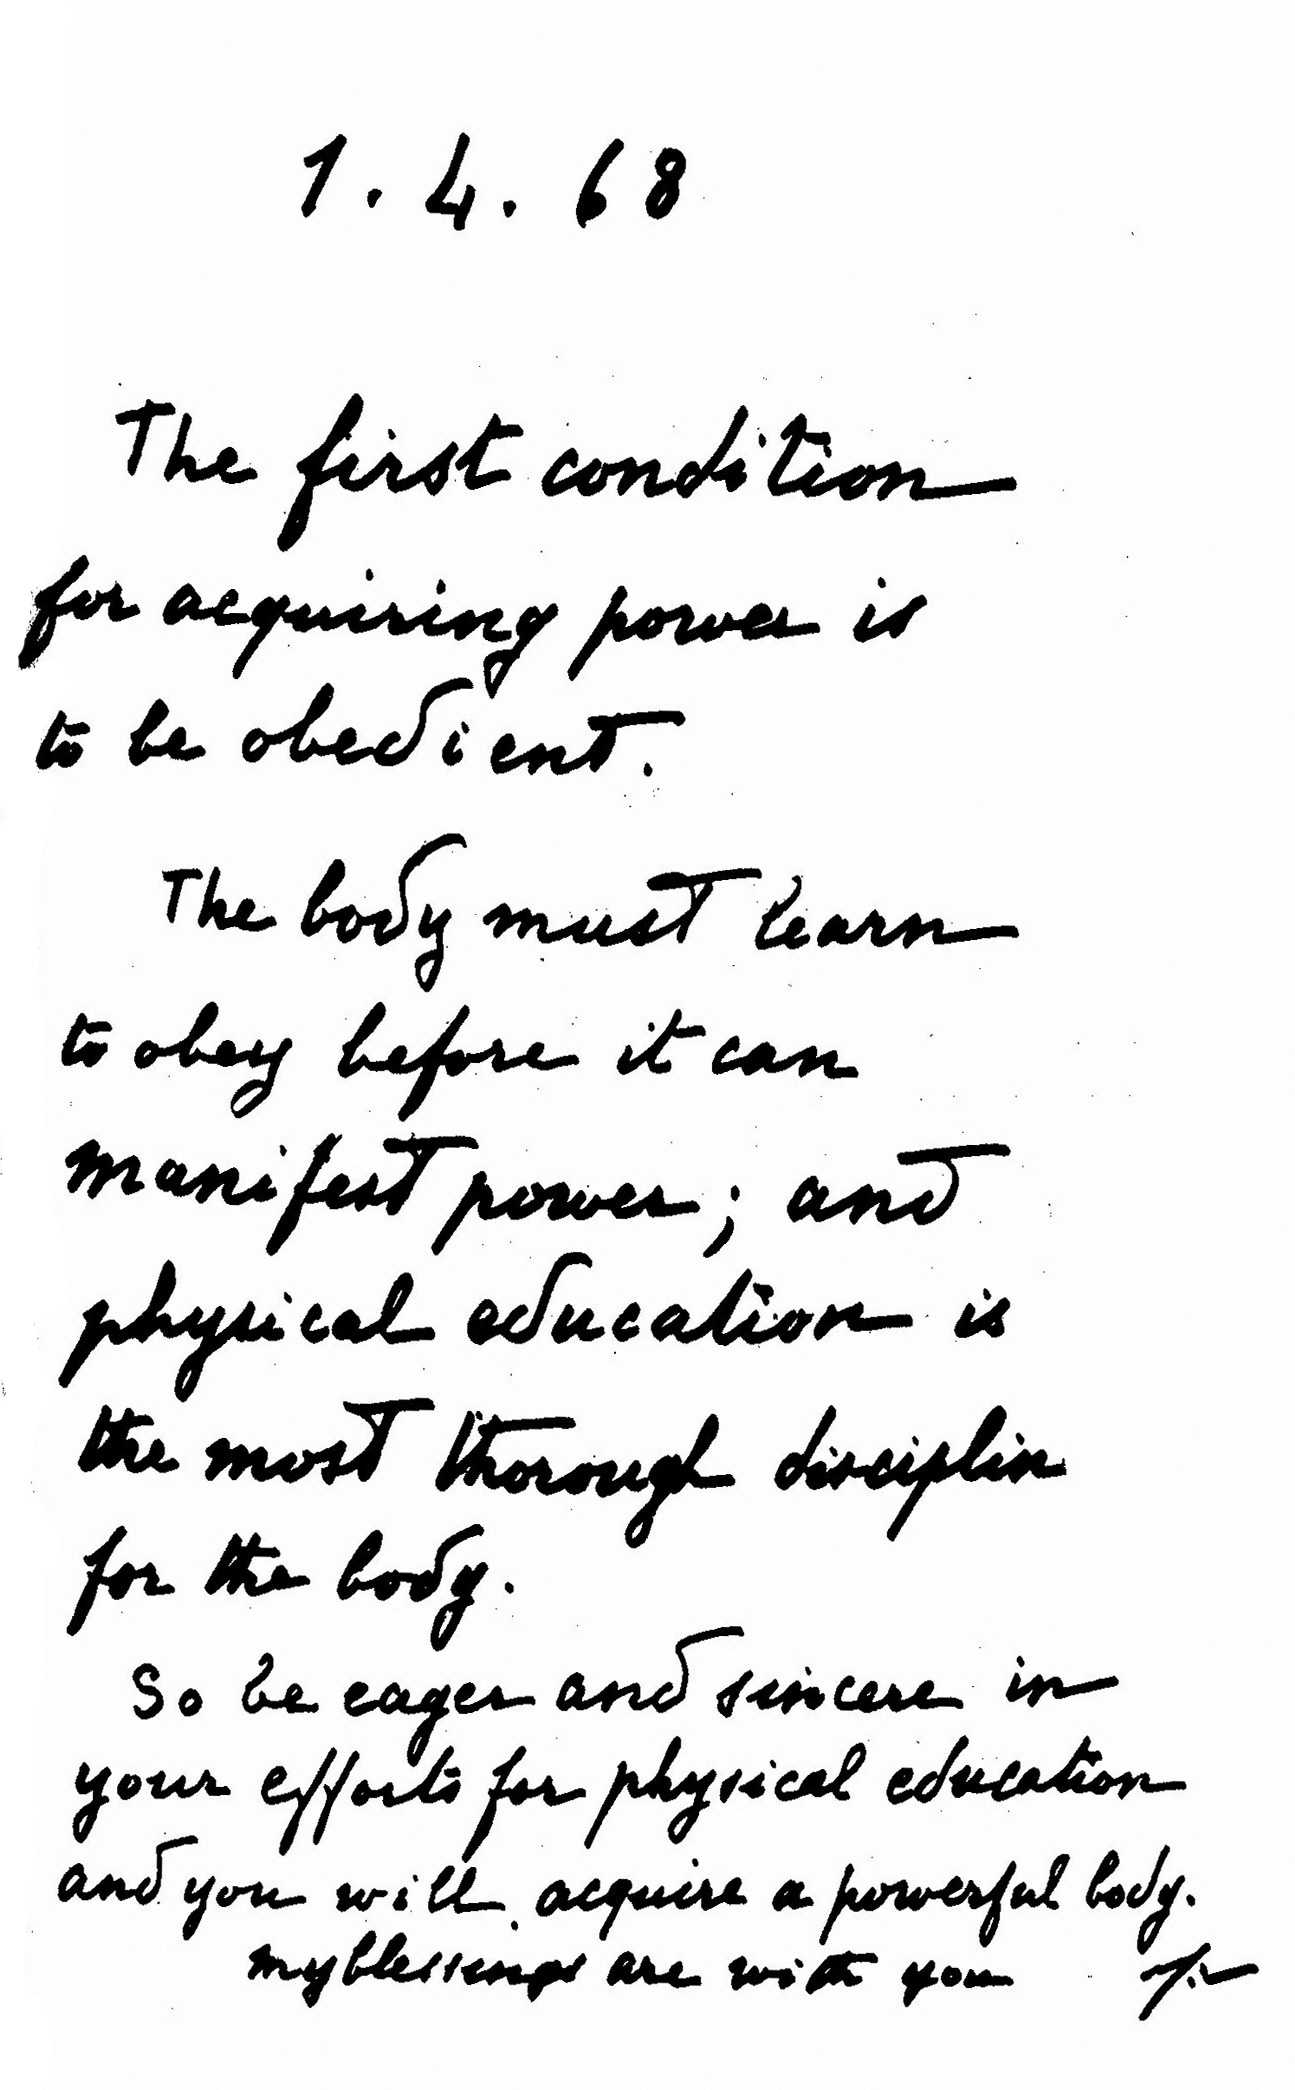 1.4.68
The first condition
for acquiring power is
to be obedient.
The body must learn
to obey before it can
manifest power; and
physical education is
the most thorough disciplin
for the body.
So be eager and sincere in
your efforts for physical education
and you will acquire a powerful body.
my blessings are with you